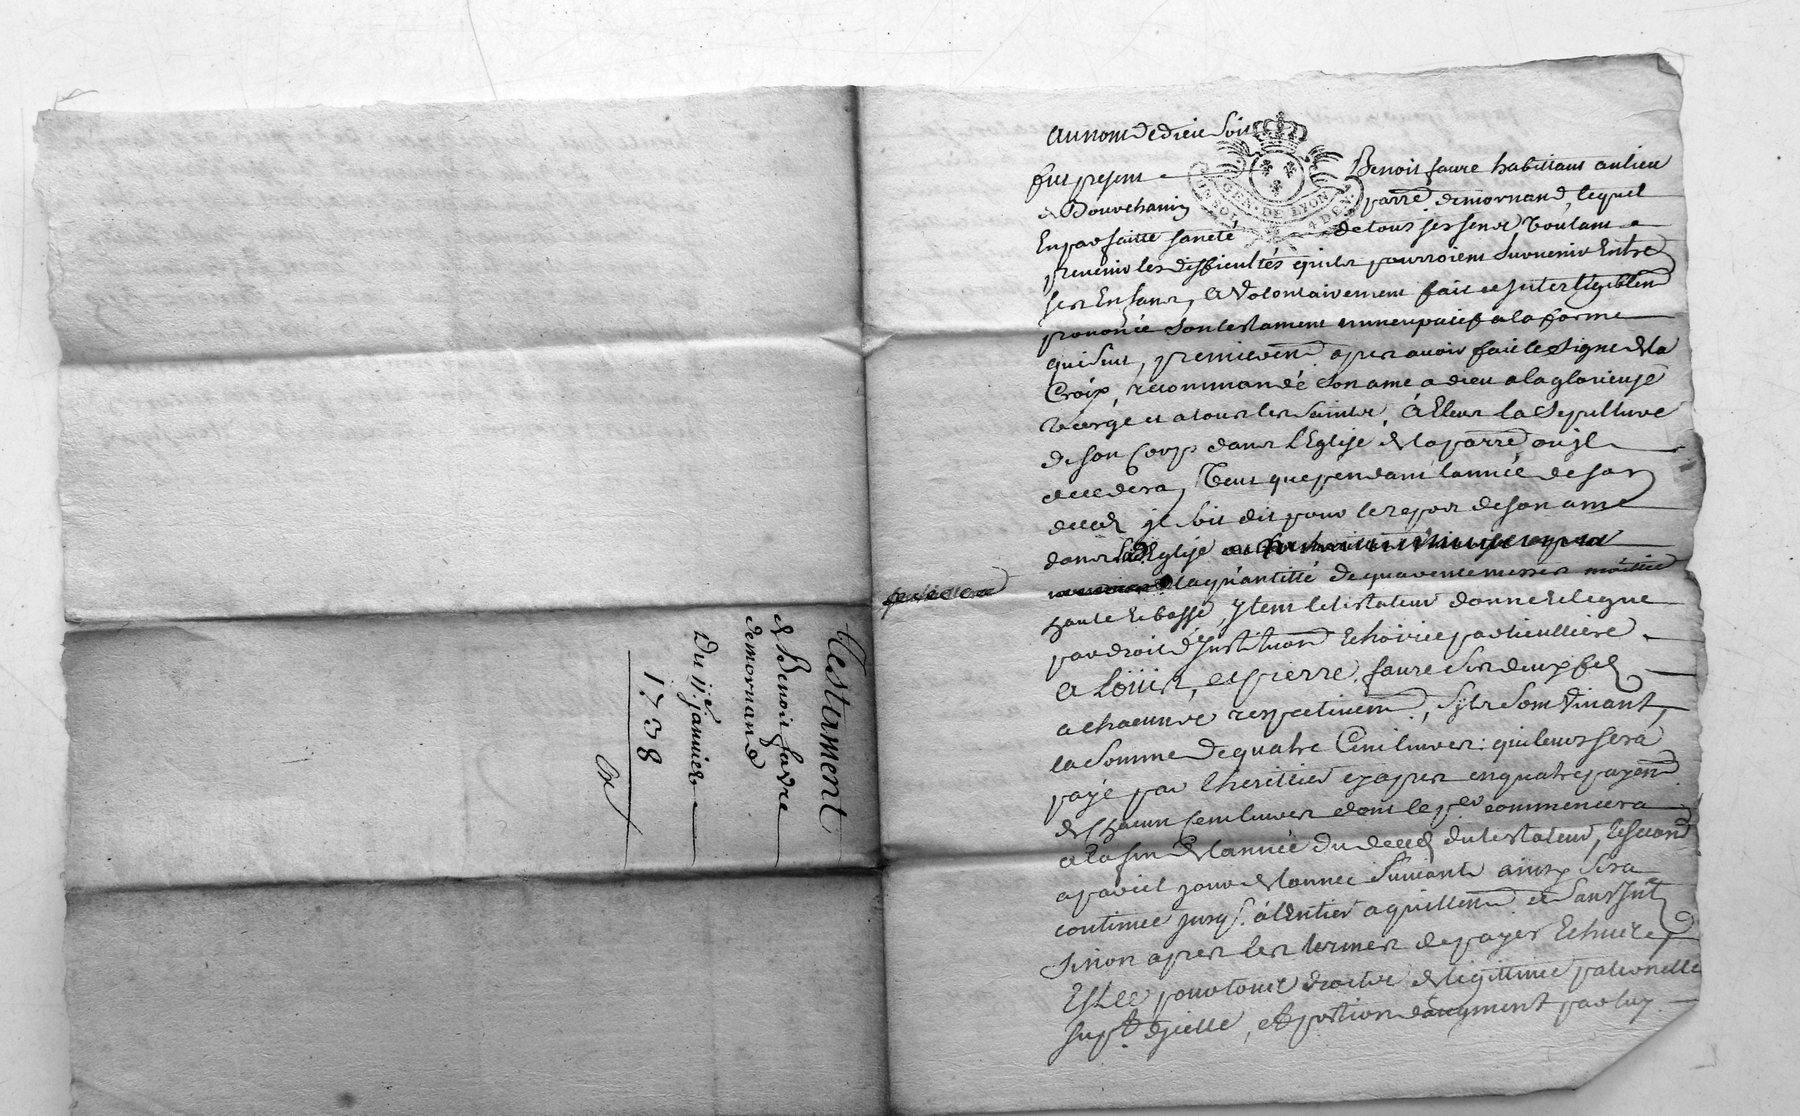 Testament
de Benoit favre
de mornand
Du 11e janvier
1738
au nom de dieu soit
fut present Benoit faure habittant au lieu
de parre de mornand, lequel
En parfaitte santé de tous ses sens voulant
prevenir les difficultés quils pourroient survenir Entre
ses Enfans, a volontairement fait et Intelligiblemt
prononcé son testament nuncupatif a la forme
qui suit, premieremt apres avoir fait le signe de la
Croix, recommandé son ame a dieu a la glorieuse
vierge et a tous les saints à Eleu la sepulture
de son Corps dans l'Eglise de la parre ou jl
decedera, veut que pendant l'année de son
deced jl soit dit pour le repos de son ame
dans Eglise
la quantitté de quarente messes moittié
haute et basse, jtem le testateur donne et legue
par droit d'Institution et hoirie particulliere
a Loüis, et pierre faure ses deux fils
a chacun respectivemt, s'jls sont vivant,
la somme de quatre Cent livres qui leur sera
payé par l'heritier cy apres en quatre payemt
de Chacun Cent livres dont le per commencera
a la fin de l'année du deced du testateur, le second
a pareil jour de l'année suivante ainsy sera
continué jusq. à l'Entier aquittemt et sans Int
sinon apres les termes de payer Echus
Est ce pour tout droits de legittime paternelle
supt d'jcelle, et portion d'augment par luy